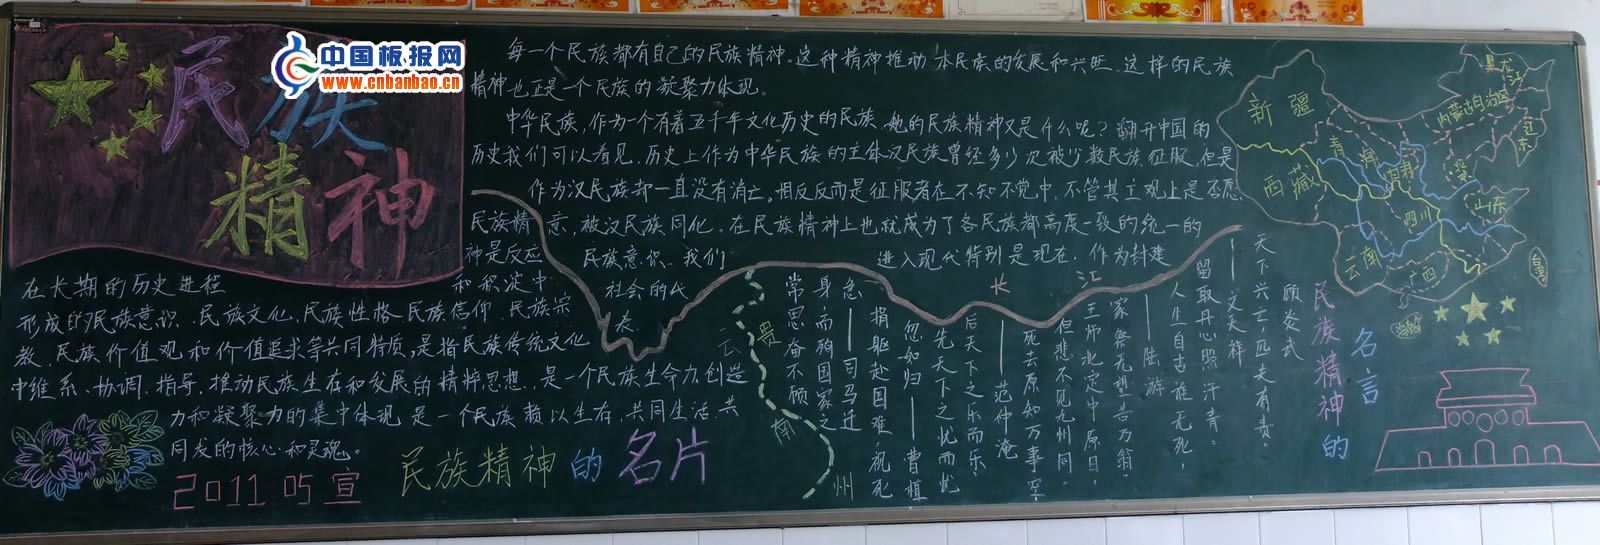 中国板报网
www.cnbanbao.cn
民族
精神
每一个民族都有自己的民族精神。这种精神推动本民族的发展和兴旺、这样的民族
精神也正是一个民族的凝聚力体现。
中华民族,作为一个有着五千年文化历史的民族,她的民族精神又是什么呢?翻开中国的
历史我们可以看见,历史上作为中华民族的主体汉民族曾经多少次被少数民族征服,但是
作为汉民族却一直没有消亡。相反反而是征服者在不知不觉中,不管其主观上是否愿
意,被汉民族同化。在民族精神上也就成为了各民族都高度一致的统一的
民族精
神是反应
民族意识、我们
进入现代特别是现在,作为封建
社会的代
表
在长期的历史进程
和积淀中
形成的民族意识、民族文化、民族性格、民族信仰、民族宗
教、民族价值观和价值追求等共同特质,是指民族传统文化
中维系、协调、指导、推动民族生存和发展的精粹思想,是一个民族生命力、创造
力和凝聚力的集中体现 是一个民族赖以生存、共同生活、共
同发的核心和灵魂。
2011 05 宣
民族精神的名片
长 江
云
贵
南
州
民族精神的
名言
顾炎武
天下兴亡,匹夫有责。
——文天祥
留取丹心照汗青。
人生自古谁无死,
——陆游
家祭无望告乃翁。
王师北定中原日,
但悲不见九州同。
死去原知万事空
——范仲淹
后天下之乐而乐、
先天下之忧而忧
——曹植
忽如归
捐躯赴国难,视死
——司马迁
急
身,而殉国家之
常思奋不顾
新疆
西藏
青海
甘肃
四川
云南
广西
内蒙古自治区
黑龙江
辽东
冀
山东
台湾
海南